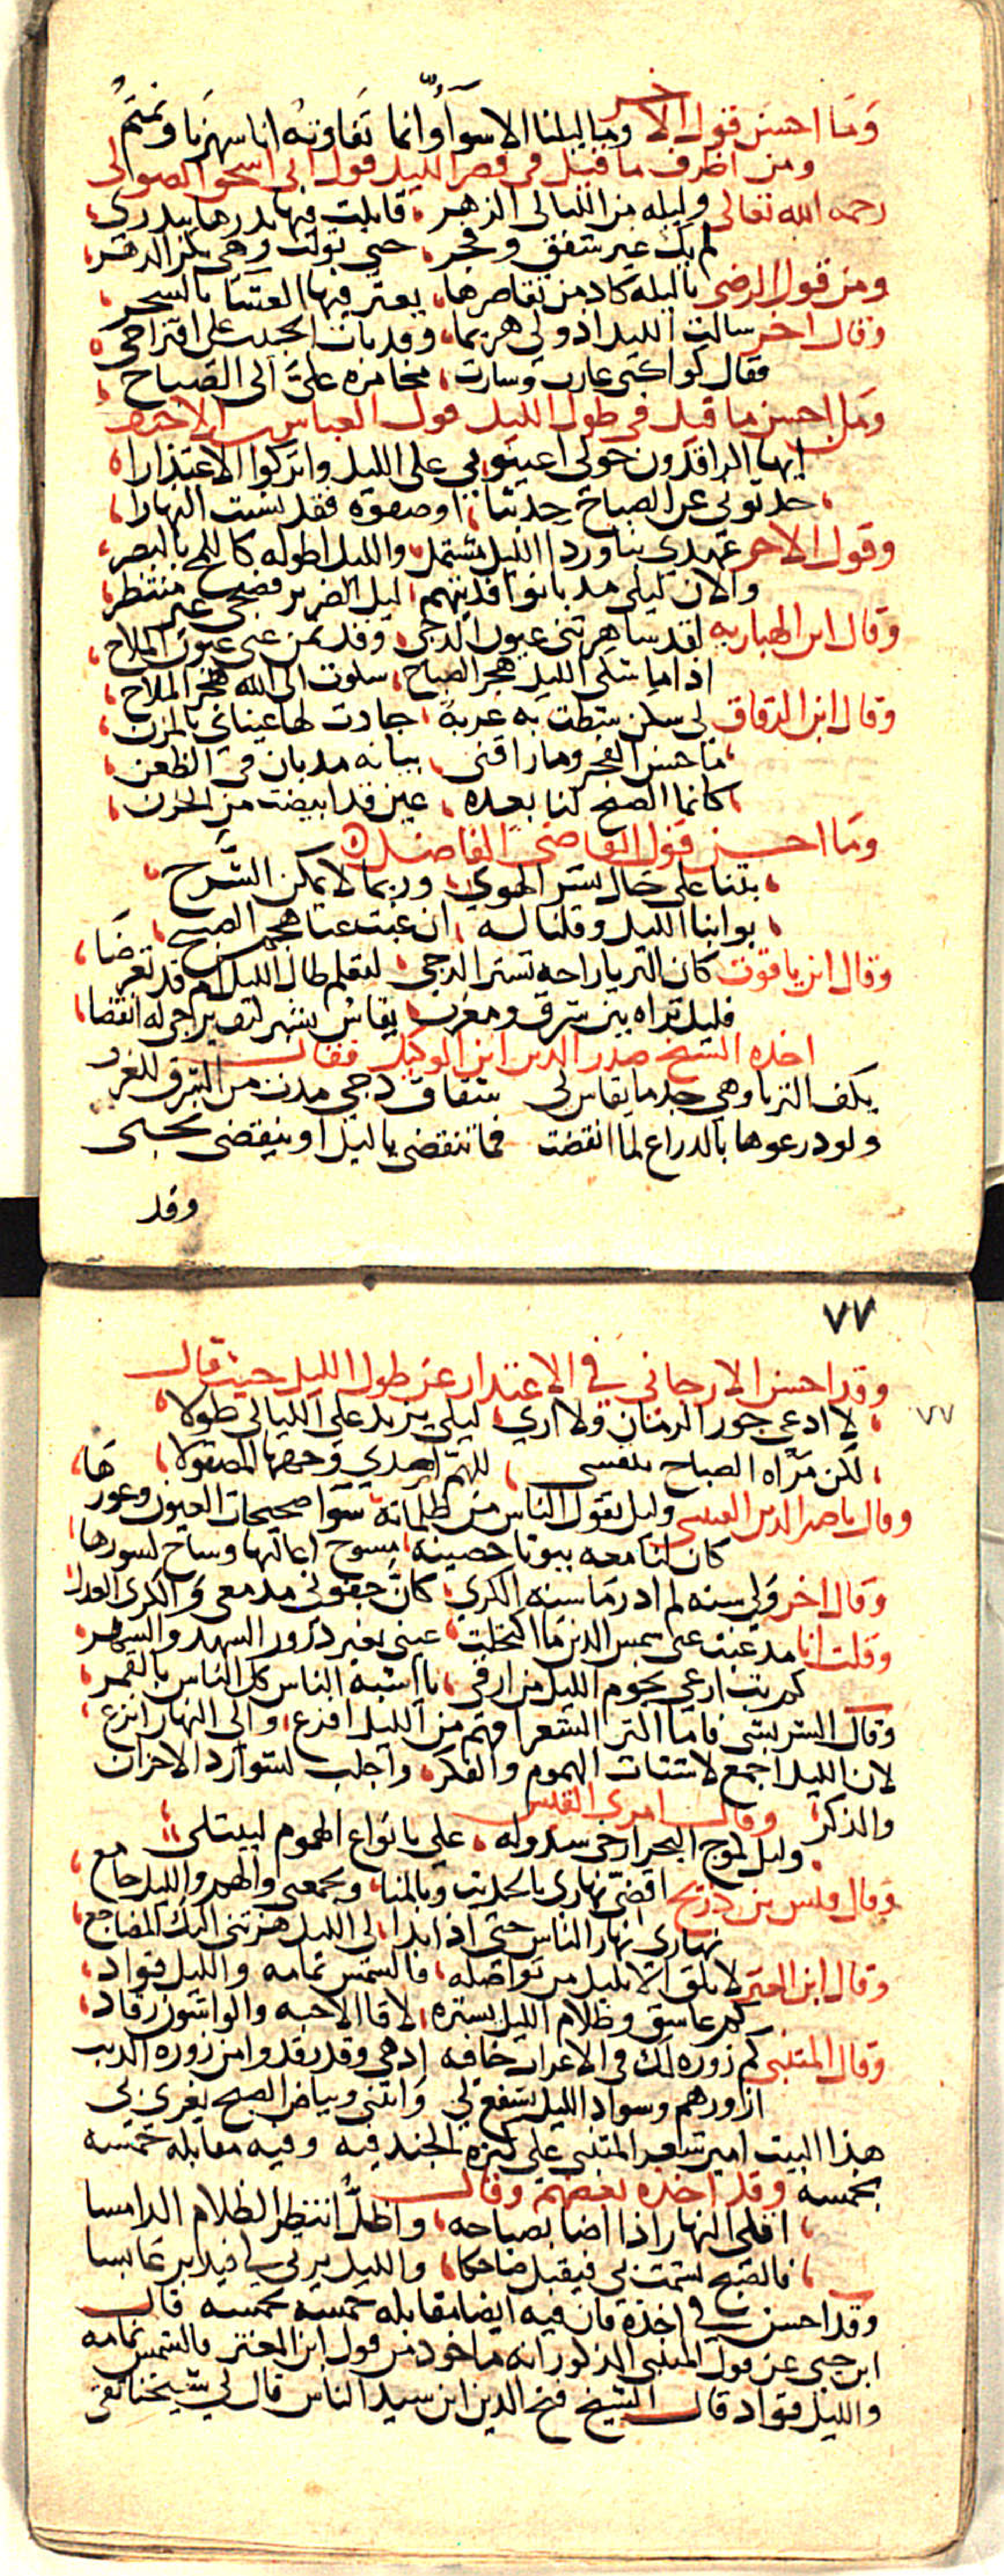 وما احسن قول الاخر وما ليلنا الا سوآ وانما تفاوته انا سهرنا ونمتم
ومن اظرف ما قيل في قصر الليل قول ابي اسحق الصولى
رحمه الله تعالى وليلة من الليالى الزهر قابلت فيها بدرها ببدرى
لم يك غير شفق وفجر حتى تولت وهى بكر الدهر
ومن قول الرضى ياليلة كاد من تقاصرها يعثر فيها العشا بالسحر
وقال اخر سالت الليل اذ ولى هزيما وقد بات الحبيب على اقتراحى
فقال كواكبى غارت وسارت مخامرة على الى الصباح
ومن احسن ما قيل في طول الليل قول العباس بن الاحنف
ايها الراقدون حولى اعينونى على الليل واتركوا الاعتذارا
حدثونى عن الصباح حديثا اوصفوه فقد نسيت النهارا
وقول الاخر عهدى بنا وردا الليل مشتمل والليل اطوله كاللمح بالبصر
والان ليلى مذ بانوا فديتهم ليل الضرير فصبحى غير منتظر
وقال ابن الهباريه لقد ساهرتنى عيون الدجى وقد نمن عنى عيون الملاح
اذا ما شكى الليل هجر الصباح شكوت الى الله هجر الملاح
وقال ابن الدقاق لى سكن شطت به غربة جادت لها عيناى بالمزن
ما حسن الفجر وما راقنى بيانه مذ بان في الظعن
كانما الصبح لنا بعده عين قد ابيضت من الحزن
وما احسن قول القاضى الفاضل
بتنا على حال يسر الهوى وربما لا يمكن الشرح
بوابنا الليل وقلنا له ان غبت عنا هجم الصبح
وقال ابن ياقوت كان الثريا راحة تشبر الدجى لتعلم طال الليل ام قد تعرضا
فليل تراه بين شرق ومغرب يقاس بشبر كيف يرجى له انقضا
اخذه الشيخ صدر الدين ابن الوكيل فقال
بكف الثريا وهي جدما يقاس لى شقاق دجى مدت من الشرق للغرب
ولو درعوها بالدراع لما انقضت فما تنقضى ياليل او ينقضى نحبى
وقد
٧٧
وقد احسن الارجانى في الاعتدار عن طول الليل حيث قال
٧٧
لا ادعى جور الزمان ولا ارى ليلى يزيد على الليالى طولا
لكن مرآه الصباح تنفسى للهم اصدى وجهها المصقولا
وقال ناصر الدين وليل يقول الناس من ظلماته سوا صحيحات العيون وعورها
كان لنا معه بيوتا حصينة مسوح اعاليها وساج كسورها
وقال اخر ولى سنه لم ادر ما سنه الكرى كان جفونى مدمعى والكرى العدل
وقلت انا مذ غبت عنى يا شمس الدين ما اكتحلت عينى بغير ذرور السهد والسهر
كم بت ارعى نجوم الليل من ارقى يا اشبه الناس كل الناس بالقمر
وقال الشريشى فاما اكثر الشعرا فهم من الليل افزع والى النهار انزع
لان الليل اجمع لاشتات الهموم والفكر واجلب لشوارد الاحزان
والذكر وقال امرى القيس
وليل كموج البحر ارخى سدوله على بانواع الهموم ليبتلى
وقال قيس بن ذريح اقضى نهارى بالحديث وبالمنا ويجمعنى والهم والليل جامع
نهارى نهار الناس حتى اذا بدا لى الليل هزتنى اليك المضاجع
وقال ابن المعتز لا تلق الا بليل من تواصله فالشمس نمامه والليل قواد
كم عاشق وظلام الليل يستره لاقا الاحبه والواشون رقاد
وقال المتنبى كم زورة لك في الاعراب خافيه ادهى وقد رقدوا من زورة الذيب
ازورهم وسواد الليل يشفع لى وانثنى وبياض الصبح يغرى بى
هذا البيت امير شعر المتنبى على كثرة الجيد فيه وفيه مقابله خمسه
بخمسه وقد اخذه بعضهم وقال
اقلى النهار اذا اضا بصباحه واظل انتظر الظلام الدامسا
فالصبح يشمت بى فيقبل ضاحكا والليل يرثى لى فيدبر عابسا
وقد احسن في اخذه فان فيه ايضا مقابله خمسه بخمسه قال
ابن جنى عن قول المتنبى المذكور انه ماخوذ من قول ابن المعتز فالشمس نمامه
والليل قواد قال الشيخ فتح الدين ابن سيد الناس قال لى شيخنا تقى